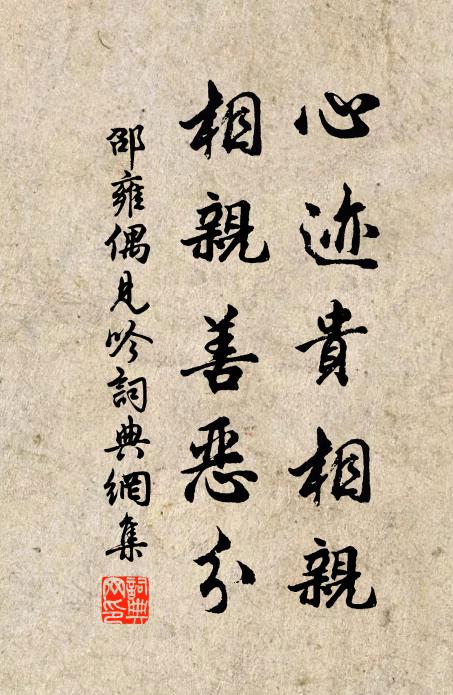 心迹貴相親
相親善惡分
邵雍偶見吟詞典網集
詞典
網印